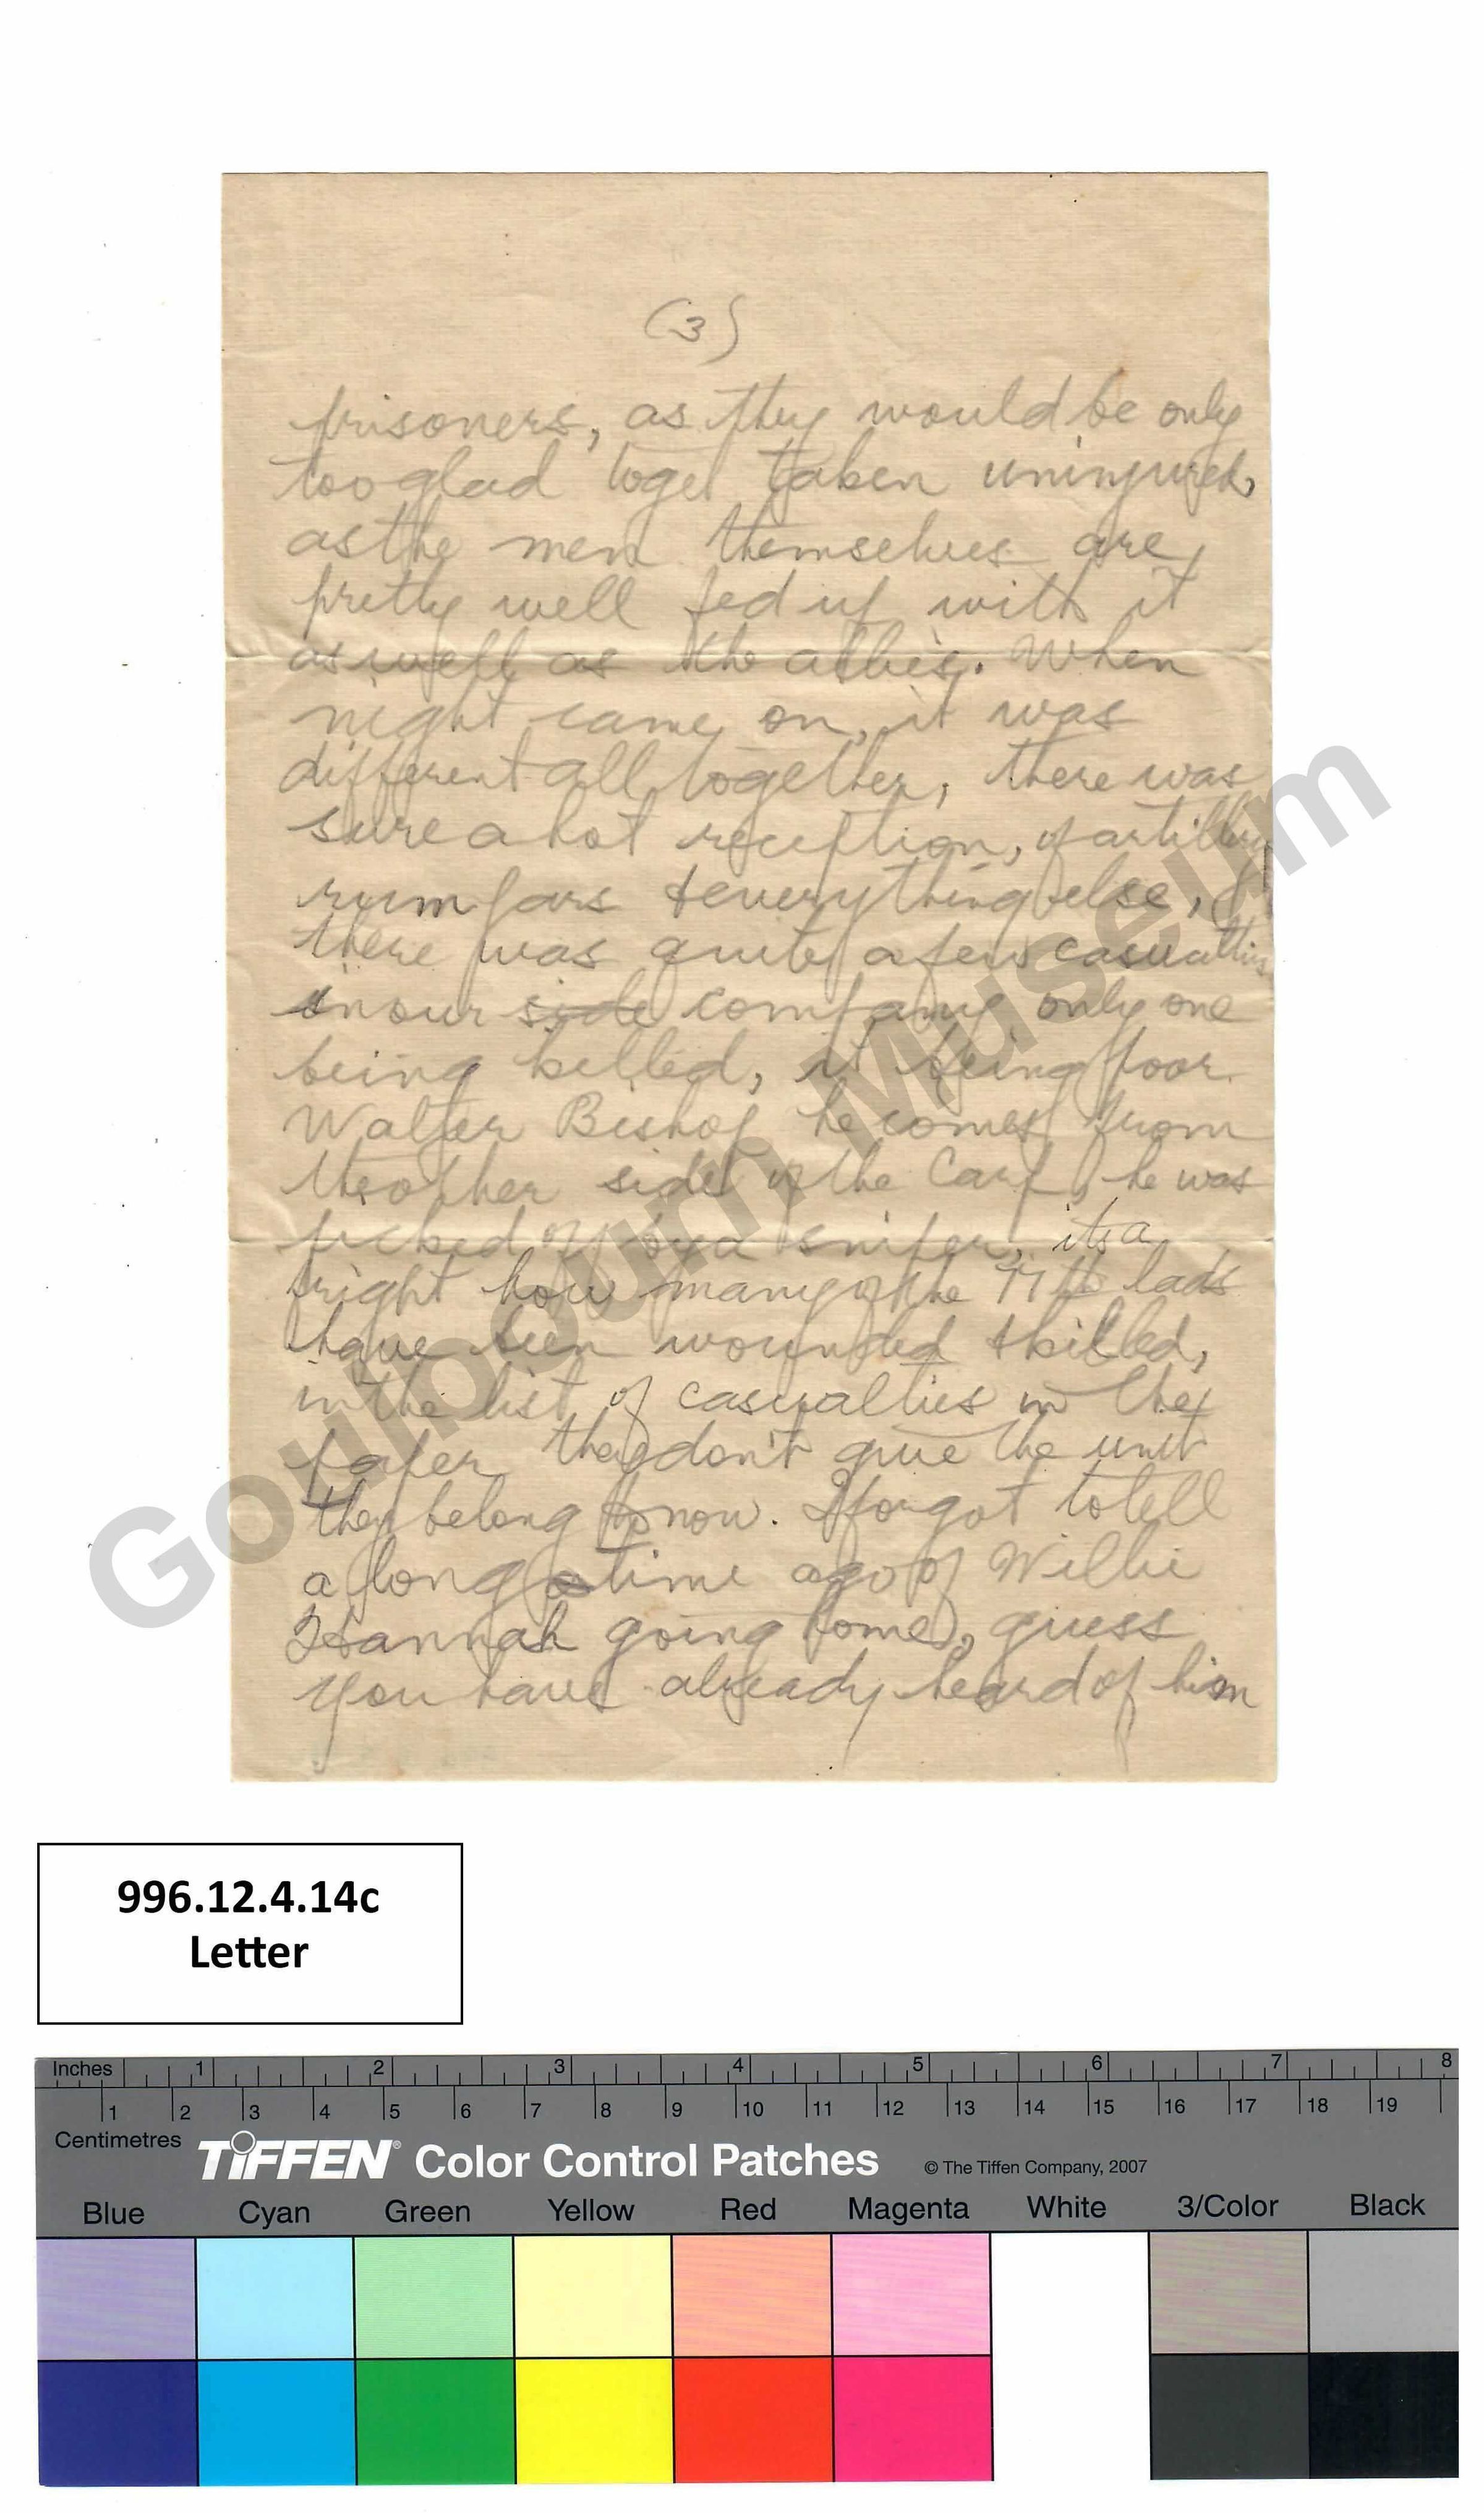 (3)
prisoners, as they would be only
too glad to get taken uninjured,
as the men themselves are
pretty well fed up with it
as well as the allies. When
night came on, it was
different all together, there was
sure a hot reception, of artillery
rum jars & everything else, &
there was quite a few casualties
in our side company only one
being killed, it being poor
Walter Bishop he comes from
the other side of the Carp, he was
picked off by a sniper, its a
fright how many of the 77th lads
have been wounded & killed,
in the list of casualties in the
paper they don't give the unit
they belong to now. I forgot to tell
a long a time ago of Willie
Hannah going home, guess
you have already heard of him
Goulbourn Museum
996.12.4.14c
Letter
Inches 1 2 3 4 5 6 7 8
1 2 3 4 5 6 7 8 9 10 11 12 13 14 15 16 17 18 19
Centimetres
TIFFEN® Color Control Patches © The Tiffen Company, 2007
Blue Cyan Green Yellow Red Magenta White 3/Color Black